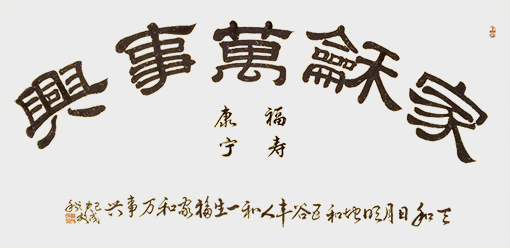 家龢萬事興
福寿
康宁
天和日月明地和五谷丰人和一生福家和万事兴